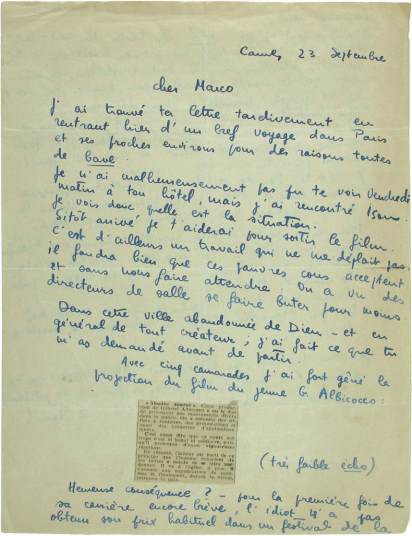 Cannes 23 Septembre
cher Marco
J'ai trouvé ta lettre tardivement en
rentrant hier d'un bref voyage dans Paris
et ses proches environs pour des raisons toutes
de
Je n'ai malheureusement pas pu te voir Vendredi
matin à ton hôtel, mais j'ai rencontré Isou.
Je vois donc quelle est la situation.
Sitôt arrivé je t'aiderai pour sortir le film.
C'est d'ailleurs un travail qui ne me déplait pas.
il faudra bien que ces pauvres cons acceptent
et sans nous faire attendre. On a vu des
directeurs de salle se faire buter pour moins
Dans cette ville abandonnée de Dieu - et en
général de tout créateur; j'ai fait ce que tu
m'as demandé avant de partir.
Avec cinq camarades j'ai fort gêné la
projection du film du jeune G. Albicocco:
(très faible écho)
Heureuse conséquence ? - pour la première fois de
sa carrière encore brève, l'idiot n'a pas
obtenu son prix habituel dans un festival de la